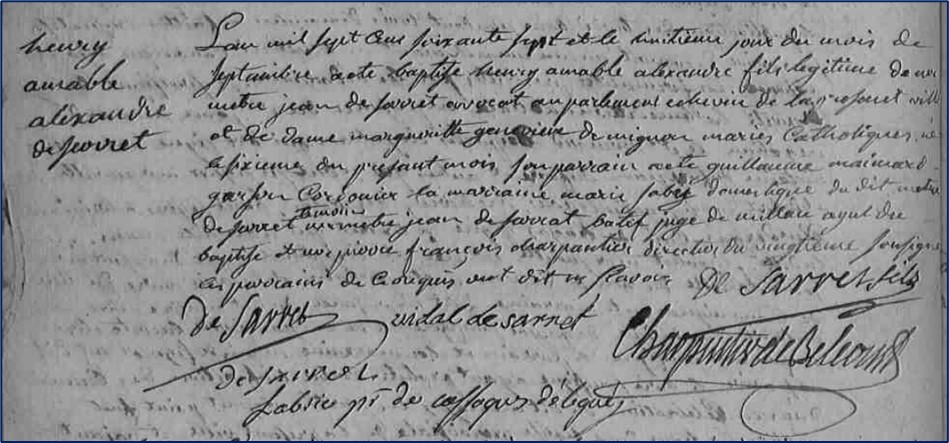 henry
amable
alexandre
de sarret
L'an mil sept cens soixante sept et le huitieme jour du mois de
septembre a ete baptise henry amable alexandre fils legitime de
metre jean de sarret avocat au parlement de la ville
et de dame margueritte genevieve de mignon maries Catholiques né
le sixieme du presant mois son parrain a ete guillaume
garson Cordonier la marraine marie fabre domestique du dit metre
de sarret temoins jean de sarrat juge de millau ayul du
baptise pierre françois charpantier directeur du vingtieme
ces parrains de requis ont dit ne scavoir De Sarret fils
De Sarret vidal de sarret
Charpentier de
de Sarret
fabrie de